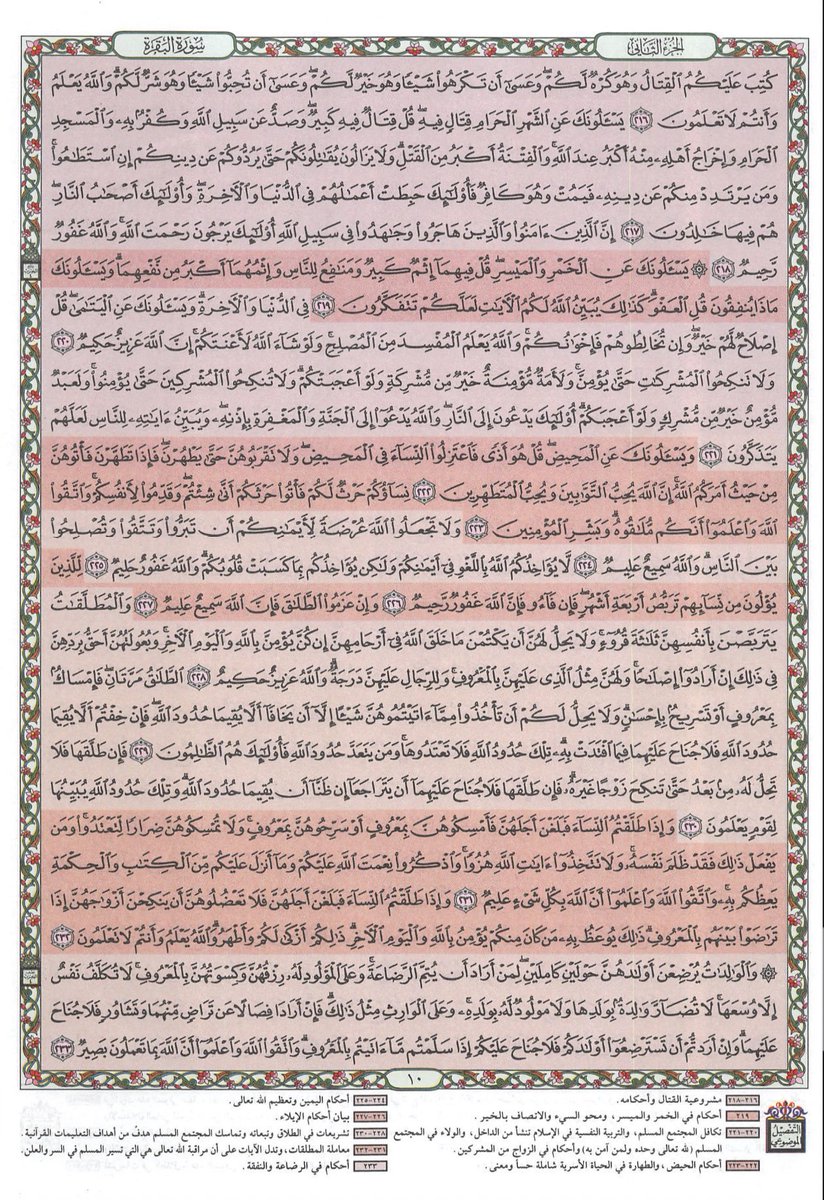 الجزء الثاني
سورة البقرة
كُتِبَ عَلَيْكُمُ ٱلْقِتَالُ وَهُوَ كُرْهٌ لَّكُمْ ۖ وَعَسَىٰٓ أَن تَكْرَهُوا۟ شَيْـًٔا وَهُوَ خَيْرٌ لَّكُمْ ۖ وَعَسَىٰٓ أَن تُحِبُّوا۟ شَيْـًٔا وَهُوَ شَرٌّ لَّكُمْ ۗ وَٱللَّهُ يَعْلَمُ
وَأَنتُمْ لَا تَعْلَمُونَ ٢١٦ يَسْـَٔلُونَكَ عَنِ ٱلشَّهْرِ ٱلْحَرَامِ قِتَالٍ فِيهِ ۖ قُلْ قِتَالٌ فِيهِ كَبِيرٌ ۖ وَصَدٌّ عَن سَبِيلِ ٱللَّهِ وَكُفْرٌۢ بِهِۦ وَٱلْمَسْجِدِ
ٱلْحَرَامِ وَإِخْرَاجُ أَهْلِهِۦ مِنْهُ أَكْبَرُ عِندَ ٱللَّهِ ۚ وَٱلْفِتْنَةُ أَكْبَرُ مِنَ ٱلْقَتْلِ ۗ وَلَا يَزَالُونَ يُقَٰتِلُونَكُمْ حَتَّىٰ يَرُدُّوكُمْ عَن دِينِكُمْ إِنِ ٱسْتَطَٰعُوا۟ ۚ
وَمَن يَرْتَدِدْ مِنكُمْ عَن دِينِهِۦ فَيَمُتْ وَهُوَ كَافِرٌ فَأُو۟لَٰٓئِكَ حَبِطَتْ أَعْمَٰلُهُمْ فِى ٱلدُّنْيَا وَٱلْـَٔاخِرَةِ ۖ وَأُو۟لَٰٓئِكَ أَصْحَٰبُ ٱلنَّارِ ۖ
هُمْ فِيهَا خَٰلِدُونَ ٢١٧ إِنَّ ٱلَّذِينَ ءَامَنُوا۟ وَٱلَّذِينَ هَاجَرُوا۟ وَجَٰهَدُوا۟ فِى سَبِيلِ ٱللَّهِ أُو۟لَٰٓئِكَ يَرْجُونَ رَحْمَتَ ٱللَّهِ ۚ وَٱللَّهُ غَفُورٌ
رَّحِيمٌ ٢١٨ ۞ يَسْـَٔلُونَكَ عَنِ ٱلْخَمْرِ وَٱلْمَيْسِرِ ۖ قُلْ فِيهِمَآ إِثْمٌ كَبِيرٌ وَمَنَٰفِعُ لِلنَّاسِ وَإِثْمُهُمَآ أَكْبَرُ مِن نَّفْعِهِمَا ۗ وَيَسْـَٔلُونَكَ
مَاذَا يُنفِقُونَ قُلِ ٱلْعَفْوَ ۗ كَذَٰلِكَ يُبَيِّنُ ٱللَّهُ لَكُمُ ٱلْـَٔايَٰتِ لَعَلَّكُمْ تَتَفَكَّرُونَ ٢١٩ فِى ٱلدُّنْيَا وَٱلْـَٔاخِرَةِ ۗ وَيَسْـَٔلُونَكَ عَنِ ٱلْيَتَٰمَىٰ ۖ قُلْ
إِصْلَاحٌ لَّهُمْ خَيْرٌ ۖ وَإِن تُخَالِطُوهُمْ فَإِخْوَٰنُكُمْ ۚ وَٱللَّهُ يَعْلَمُ ٱلْمُفْسِدَ مِنَ ٱلْمُصْلِحِ ۚ وَلَوْ شَآءَ ٱللَّهُ لَأَعْنَتَكُمْ ۚ إِنَّ ٱللَّهَ عَزِيزٌ حَكِيمٌ ٢٢٠
وَلَا تَنكِحُوا۟ ٱلْمُشْرِكَٰتِ حَتَّىٰ يُؤْمِنَّ ۚ وَلَأَمَةٌ مُّؤْمِنَةٌ خَيْرٌ مِّن مُّشْرِكَةٍ وَلَوْ أَعْجَبَتْكُمْ ۗ وَلَا تُنكِحُوا۟ ٱلْمُشْرِكِينَ حَتَّىٰ يُؤْمِنُوا۟ ۚ وَلَعَبْدٌ
مُّؤْمِنٌ خَيْرٌ مِّن مُّشْرِكٍ وَلَوْ أَعْجَبَكُمْ ۗ أُو۟لَٰٓئِكَ يَدْعُونَ إِلَى ٱلنَّارِ ۖ وَٱللَّهُ يَدْعُوٓا۟ إِلَى ٱلْجَنَّةِ وَٱلْمَغْفِرَةِ بِإِذْنِهِۦ ۖ وَيُبَيِّنُ ءَايَٰتِهِۦ لِلنَّاسِ لَعَلَّهُمْ
يَتَذَكَّرُونَ ٢٢١ وَيَسْـَٔلُونَكَ عَنِ ٱلْمَحِيضِ ۖ قُلْ هُوَ أَذًى فَٱعْتَزِلُوا۟ ٱلنِّسَآءَ فِى ٱلْمَحِيضِ ۖ وَلَا تَقْرَبُوهُنَّ حَتَّىٰ يَطْهُرْنَ ۖ فَإِذَا تَطَهَّرْنَ فَأْتُوهُنَّ
مِنْ حَيْثُ أَمَرَكُمُ ٱللَّهُ ۚ إِنَّ ٱللَّهَ يُحِبُّ ٱلتَّوَّٰبِينَ وَيُحِبُّ ٱلْمُتَطَهِّرِينَ ٢٢٢ نِسَآؤُكُمْ حَرْثٌ لَّكُمْ فَأْتُوا۟ حَرْثَكُمْ أَنَّىٰ شِئْتُمْ ۖ وَقَدِّمُوا۟ لِأَنفُسِكُمْ ۚ وَٱتَّقُوا۟
ٱللَّهَ وَٱعْلَمُوٓا۟ أَنَّكُم مُّلَٰقُوهُ ۗ وَبَشِّرِ ٱلْمُؤْمِنِينَ ٢٢٣ وَلَا تَجْعَلُوا۟ ٱللَّهَ عُرْضَةً لِّأَيْمَٰنِكُمْ أَن تَبَرُّوا۟ وَتَتَّقُوا۟ وَتُصْلِحُوا۟
بَيْنَ ٱلنَّاسِ ۗ وَٱللَّهُ سَمِيعٌ عَلِيمٌ ٢٢٤ لَّا يُؤَاخِذُكُمُ ٱللَّهُ بِٱللَّغْوِ فِىٓ أَيْمَٰنِكُمْ وَلَٰكِن يُؤَاخِذُكُم بِمَا كَسَبَتْ قُلُوبُكُمْ ۗ وَٱللَّهُ غَفُورٌ حَلِيمٌ ٢٢٥ لِّلَّذِينَ
يُؤْلُونَ مِن نِّسَآئِهِمْ تَرَبُّصُ أَرْبَعَةِ أَشْهُرٍ ۖ فَإِن فَآءُو فَإِنَّ ٱللَّهَ غَفُورٌ رَّحِيمٌ ٢٢٦ وَإِنْ عَزَمُوا۟ ٱلطَّلَٰقَ فَإِنَّ ٱللَّهَ سَمِيعٌ عَلِيمٌ ٢٢٧ وَٱلْمُطَلَّقَٰتُ
يَتَرَبَّصْنَ بِأَنفُسِهِنَّ ثَلَٰثَةَ قُرُوٓءٍ ۚ وَلَا يَحِلُّ لَهُنَّ أَن يَكْتُمْنَ مَا خَلَقَ ٱللَّهُ فِىٓ أَرْحَامِهِنَّ إِن كُنَّ يُؤْمِنَّ بِٱللَّهِ وَٱلْيَوْمِ ٱلْـَٔاخِرِ ۚ وَبُعُولَتُهُنَّ أَحَقُّ بِرَدِّهِنَّ
فِى ذَٰلِكَ إِنْ أَرَادُوٓا۟ إِصْلَٰحًا ۚ وَلَهُنَّ مِثْلُ ٱلَّذِى عَلَيْهِنَّ بِٱلْمَعْرُوفِ ۚ وَلِلرِّجَالِ عَلَيْهِنَّ دَرَجَةٌ ۗ وَٱللَّهُ عَزِيزٌ حَكِيمٌ ٢٢٨ ٱلطَّلَٰقُ مَرَّتَانِ ۖ فَإِمْسَاكٌۢ
بِمَعْرُوفٍ أَوْ تَسْرِيحٌۢ بِإِحْسَٰنٍ ۗ وَلَا يَحِلُّ لَكُمْ أَن تَأْخُذُوا۟ مِمَّآ ءَاتَيْتُمُوهُنَّ شَيْـًٔا إِلَّآ أَن يَخَافَآ أَلَّا يُقِيمَا حُدُودَ ٱللَّهِ ۖ فَإِنْ خِفْتُمْ أَلَّا يُقِيمَا
حُدُودَ ٱللَّهِ فَلَا جُنَاحَ عَلَيْهِمَا فِيمَا ٱفْتَدَتْ بِهِۦ ۗ تِلْكَ حُدُودُ ٱللَّهِ فَلَا تَعْتَدُوهَا ۚ وَمَن يَتَعَدَّ حُدُودَ ٱللَّهِ فَأُو۟لَٰٓئِكَ هُمُ ٱلظَّٰلِمُونَ ٢٢٩ فَإِن طَلَّقَهَا فَلَا
تَحِلُّ لَهُۥ مِنۢ بَعْدُ حَتَّىٰ تَنكِحَ زَوْجًا غَيْرَهُۥ ۗ فَإِن طَلَّقَهَا فَلَا جُنَاحَ عَلَيْهِمَآ أَن يَتَرَاجَعَآ إِن ظَنَّآ أَن يُقِيمَا حُدُودَ ٱللَّهِ ۗ وَتِلْكَ حُدُودُ ٱللَّهِ يُبَيِّنُهَا
لِقَوْمٍ يَعْلَمُونَ ٢٣٠ وَإِذَا طَلَّقْتُمُ ٱلنِّسَآءَ فَبَلَغْنَ أَجَلَهُنَّ فَأَمْسِكُوهُنَّ بِمَعْرُوفٍ أَوْ سَرِّحُوهُنَّ بِمَعْرُوفٍ ۚ وَلَا تُمْسِكُوهُنَّ ضِرَارًا لِّتَعْتَدُوا۟ ۚ وَمَن
يَفْعَلْ ذَٰلِكَ فَقَدْ ظَلَمَ نَفْسَهُۥ ۚ وَلَا تَتَّخِذُوٓا۟ ءَايَٰتِ ٱللَّهِ هُزُوًا ۚ وَٱذْكُرُوا۟ نِعْمَتَ ٱللَّهِ عَلَيْكُمْ وَمَآ أَنزَلَ عَلَيْكُم مِّنَ ٱلْكِتَٰبِ وَٱلْحِكْمَةِ
يَعِظُكُم بِهِۦ ۚ وَٱتَّقُوا۟ ٱللَّهَ وَٱعْلَمُوٓا۟ أَنَّ ٱللَّهَ بِكُلِّ شَىْءٍ عَلِيمٌ ٢٣١ وَإِذَا طَلَّقْتُمُ ٱلنِّسَآءَ فَبَلَغْنَ أَجَلَهُنَّ فَلَا تَعْضُلُوهُنَّ أَن يَنكِحْنَ أَزْوَٰجَهُنَّ إِذَا
تَرَٰضَوْا۟ بَيْنَهُم بِٱلْمَعْرُوفِ ۗ ذَٰلِكَ يُوعَظُ بِهِۦ مَن كَانَ مِنكُمْ يُؤْمِنُ بِٱللَّهِ وَٱلْيَوْمِ ٱلْـَٔاخِرِ ۗ ذَٰلِكُمْ أَزْكَىٰ لَكُمْ وَأَطْهَرُ ۗ وَٱللَّهُ يَعْلَمُ وَأَنتُمْ لَا تَعْلَمُونَ ٢٣٢
۞ وَٱلْوَٰلِدَٰتُ يُرْضِعْنَ أَوْلَٰدَهُنَّ حَوْلَيْنِ كَامِلَيْنِ ۖ لِمَنْ أَرَادَ أَن يُتِمَّ ٱلرَّضَاعَةَ ۚ وَعَلَى ٱلْمَوْلُودِ لَهُۥ رِزْقُهُنَّ وَكِسْوَتُهُنَّ بِٱلْمَعْرُوفِ ۚ لَا تُكَلَّفُ نَفْسٌ
إِلَّا وُسْعَهَا ۚ لَا تُضَآرَّ وَٰلِدَةٌۢ بِوَلَدِهَا وَلَا مَوْلُودٌ لَّهُۥ بِوَلَدِهِۦ ۚ وَعَلَى ٱلْوَارِثِ مِثْلُ ذَٰلِكَ ۗ فَإِنْ أَرَادَا فِصَالًا عَن تَرَاضٍ مِّنْهُمَا وَتَشَاوُرٍ فَلَا جُنَاحَ
عَلَيْهِمَا ۗ وَإِنْ أَرَدتُّمْ أَن تَسْتَرْضِعُوٓا۟ أَوْلَٰدَكُمْ فَلَا جُنَاحَ عَلَيْكُمْ إِذَا سَلَّمْتُم مَّآ ءَاتَيْتُم بِٱلْمَعْرُوفِ ۗ وَٱتَّقُوا۟ ٱللَّهَ وَٱعْلَمُوٓا۟ أَنَّ ٱللَّهَ بِمَا تَعْمَلُونَ بَصِيرٌ ٢٣٣
١٠
التفصيل الموضوعي
٢١٦-٢١٨ مشروعية القتال وأحكامه .
٢١٩ أحكام في الخمر والميسر ، ومحو السيء والاتصاف بالخير .
٢٢٠-٢٢١ تكافل المجتمع المسلم، والتربية النفسية في الإسلام تنشأ من الداخل، والولاء في المجتمع
المسلم (لله تعالى وحده ولمن آمن به) وأحكام في الزواج من المشركين .
٢٢٢-٢٢٣ أحكام الحيض، والطهارة في الحياة الأسرية شاملة حساً ومعنى.
٢٢٤-٢٢٥ أحكام اليمين وتعظيم الله تعالى.
٢٢٦-٢٢٧ بيان أحكام الإيلاء.
٢٢٨-٢٣٠ تشريعات في الطلاق وتبعاته وتماسك المجتمع المسلم هدفٌ من أهداف التعليمات القرآنية.
٢٣١-٢٣٢ معاملة المطلقات، وتدل الآيات على أن مراقبة الله تعالى هي التي تسير المسلم في السر والعلن.
٢٣٣ أحكام في الرضاعة والنفقة .